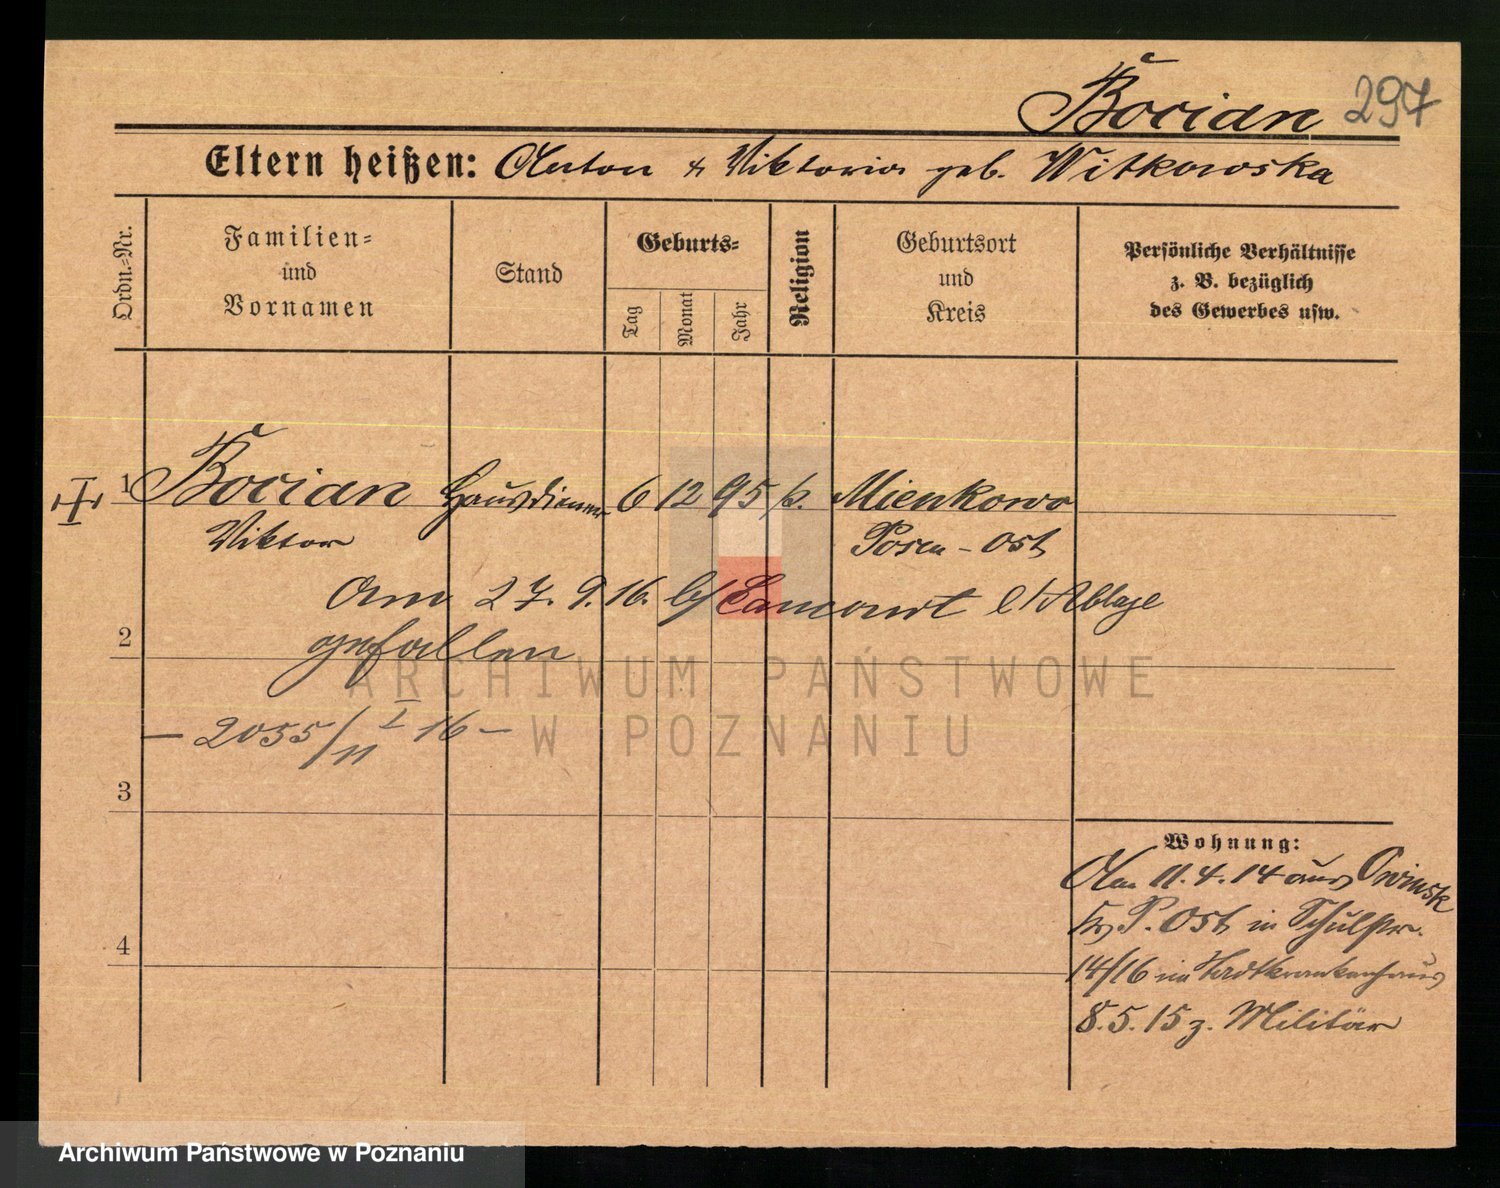 Bocian 297
Eltern heißen: Anton & Viktoria geb. Witkowska
Ordn.-Nr.
Familien-
und
Vornamen
Stand
Geburts-
Tag
Monat
Jahr
Religion
Geburtsort
und
Kreis
Persönliche Verhältnisse
z. B. bezüglich
des Gewerbes usw.
1 Bocian Hausdiener 6 12 95 k. Mienkowo
Viktor Posen-Ost
Am 27. 9. 16. b/ Lancourt
2 gefallen
ARCHIWUM PAŃSTWOWE
W POZNANIU
— 2055/11 I 16 —
3
4
Wohnung:
Am 11.4.14 aus Owinsk
P. Ost in Schulstr.
14/16 im Stadtkrankenhaus
8.5.15 z. Militär
Archiwum Państwowe w Poznaniu